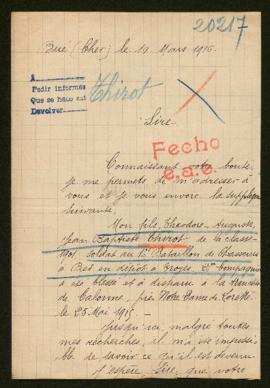 20217
Bué (Cher) le 11 Mars 1916.
A
Pedir informes
Que se hace est
Devolver
Thirot
Sire.
Fecho
e.a.e.
Connaissant votre bonté
je me permets de m'adresser à
vous et je vous envoie la supplique
suivante;
Mon fils, Théodore-Auguste,
Jean Baptiste Thirot de la classe
1901 soldat au 1er Bataillon de Chasseurs
à Pied en dépôt à Troyes 2e Compagnie
a été blessé et a disparu à la
de Calonne, près Notre Dame de Lorette
le 25 Mai 1915 -
Jusqu'ici, malgré toutes
mes recherches, il m'a été impossi
ble de savoir ce qu'il est devenu
J'espère Sire, que votre